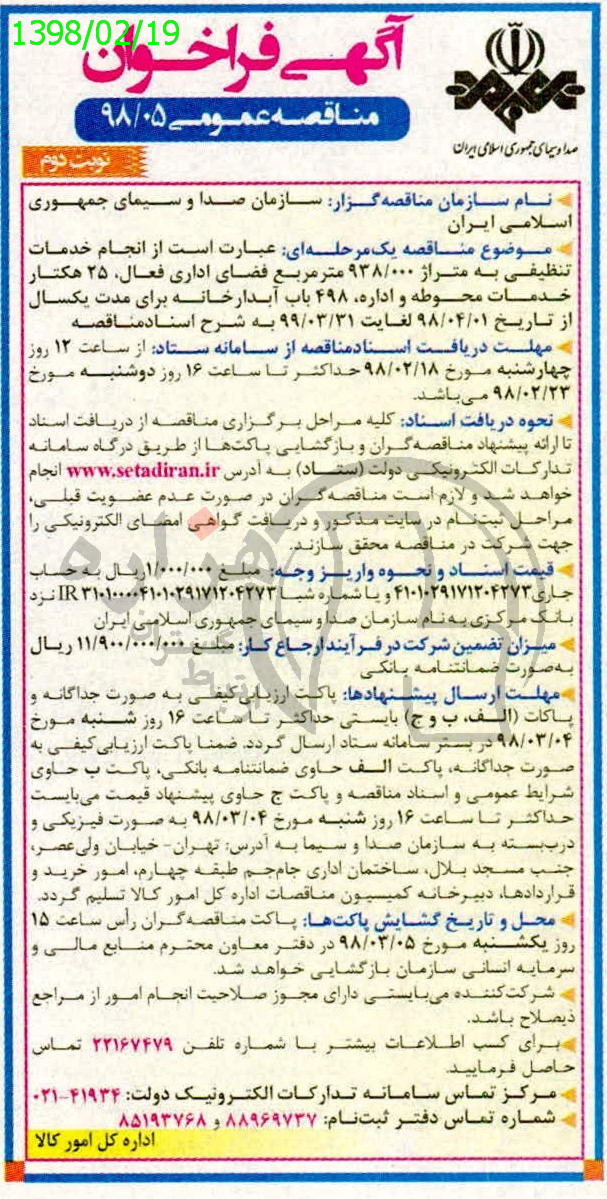 1398/02/19
آگهی فراخوان
مناقصه عمومی ۹۸/۰۵
صدا و سیمای جمهوری اسلامی ایران
نوبت دوم
نام سازمان مناقصه‌گزار: سازمان صدا و سیمای جمهوری
اسلامی ایران
موضوع مناقصه یک‌مرحله‌ای: عبارت است از انجام خدمات
تنظیفی به متراژ ۹۳۸/۰۰۰ مترمربع فضای اداری فعال، ۲۵ هکتار
خدمات محوطه و اداره، ۴۹۸ باب آبدارخانه برای مدت یکسال
از تاریخ ۹۸/۰۴/۰۱ لغایت ۹۹/۰۳/۳۱ به شرح اسنادمناقصه
مهلت دریافت اسنادمناقصه از سامانه ستاد: از ساعت ۱۲ روز
چهارشنبه مورخ ۹۸/۰۲/۱۸ حداکثر تا ساعت ۱۶ روز دوشنبه مورخ
۹۸/۰۲/۲۳ می‌باشد.
نحوه دریافت اسناد: کلیه مراحل برگزاری مناقصه از دریافت اسناد
تا ارائه پیشنهاد مناقصه‌گران و بازگشایی پاکت‌ها از طریق درگاه سامانه
تدارکات الکترونیکی دولت (ستاد) به آدرس www.setadiran.ir انجام
خواهد شد و لازم است مناقصه‌گران در صورت عدم عضویت قبلی،
مراحل ثبت‌نام در سایت مذکور و دریافت گواهی امضای الکترونیکی را
جهت شرکت در مناقصه محقق سازند.
قیمت اسناد و نحوه واریز وجه: مبلغ ۱/۰۰۰/۰۰۰ریال به حساب
جاری۴۱۰۱۰۲۹۱۷۱۲۰۴۲۷۳ و یا شماره شبا IR ۳۱۰۱۰۰۰۰۴۱۰۱۰۲۹۱۷۱۲۰۴۲۷۳ نزد
بانک مرکزی به‌نام سازمان صدا و سیمای جمهوری اسلامی ایران
میزان تضمین شرکت در فرآیند ارجاع کار: مبلغ ۱۱/۹۰۰/۰۰۰/۰۰۰ ریال
به‌صورت ضمانتنامه بانکی
مهلت ارسال پیشنهادها: پاکت ارزیابی‌کیفی به صورت جداگانه و
پاکات (الف، ب و ج) بایستی حداکثر تا ساعت ۱۶ روز شنبه مورخ
۹۸/۰۳/۰۴ در بستر سامانه ستاد ارسال گردد. ضمنا پاکت ارزیابی‌کیفی به
صورت جداگانه، پاکت الف حاوی ضمانتنامه بانکی، پاکت ب حاوی
شرایط عمومی و اسناد مناقصه و پاکت ج حاوی پیشنهاد قیمت می‌بایست
حداکثر تا ساعت ۱۶ روز شنبه مورخ ۹۸/۰۳/۰۴ به صورت فیزیکی و
درب‌بسته به سازمان صدا و سیما به آدرس: تهران- خیابان ولی‌عصر،
جنب مسجد بلال، ساختمان اداری جام‌جم طبقه چهارم، امور خرید و
قراردادها، دبیرخانه کمیسیون مناقصات اداره کل امور کالا تسلیم گردد.
محل و تاریخ گشایش پاکت‌ها: پاکت مناقصه‌گران رأس ساعت ۱۵
روز یکشنبه مورخ ۹۸/۰۳/۰۵ در دفتر معاون محترم منابع مالی و
سرمایه انسانی سازمان بازگشایی خواهد شد.
شرکت‌کننده می‌بایستی دارای مجوز صلاحیت انجام امور از مراجع
ذیصلاح باشد.
برای کسب اطلاعات بیشتر با شماره تلفن ۲۲۱۶۷۴۷۹ تماس
حاصل فرمایید.
مرکز تماس سامانه تدارکات الکترونیک دولت: ۴۱۹۳۴-۰۲۱
شماره تماس دفتر ثبت‌نام: ۸۸۹۶۹۷۳۷ و ۸۵۱۹۳۷۶۸
اداره کل امور کالا